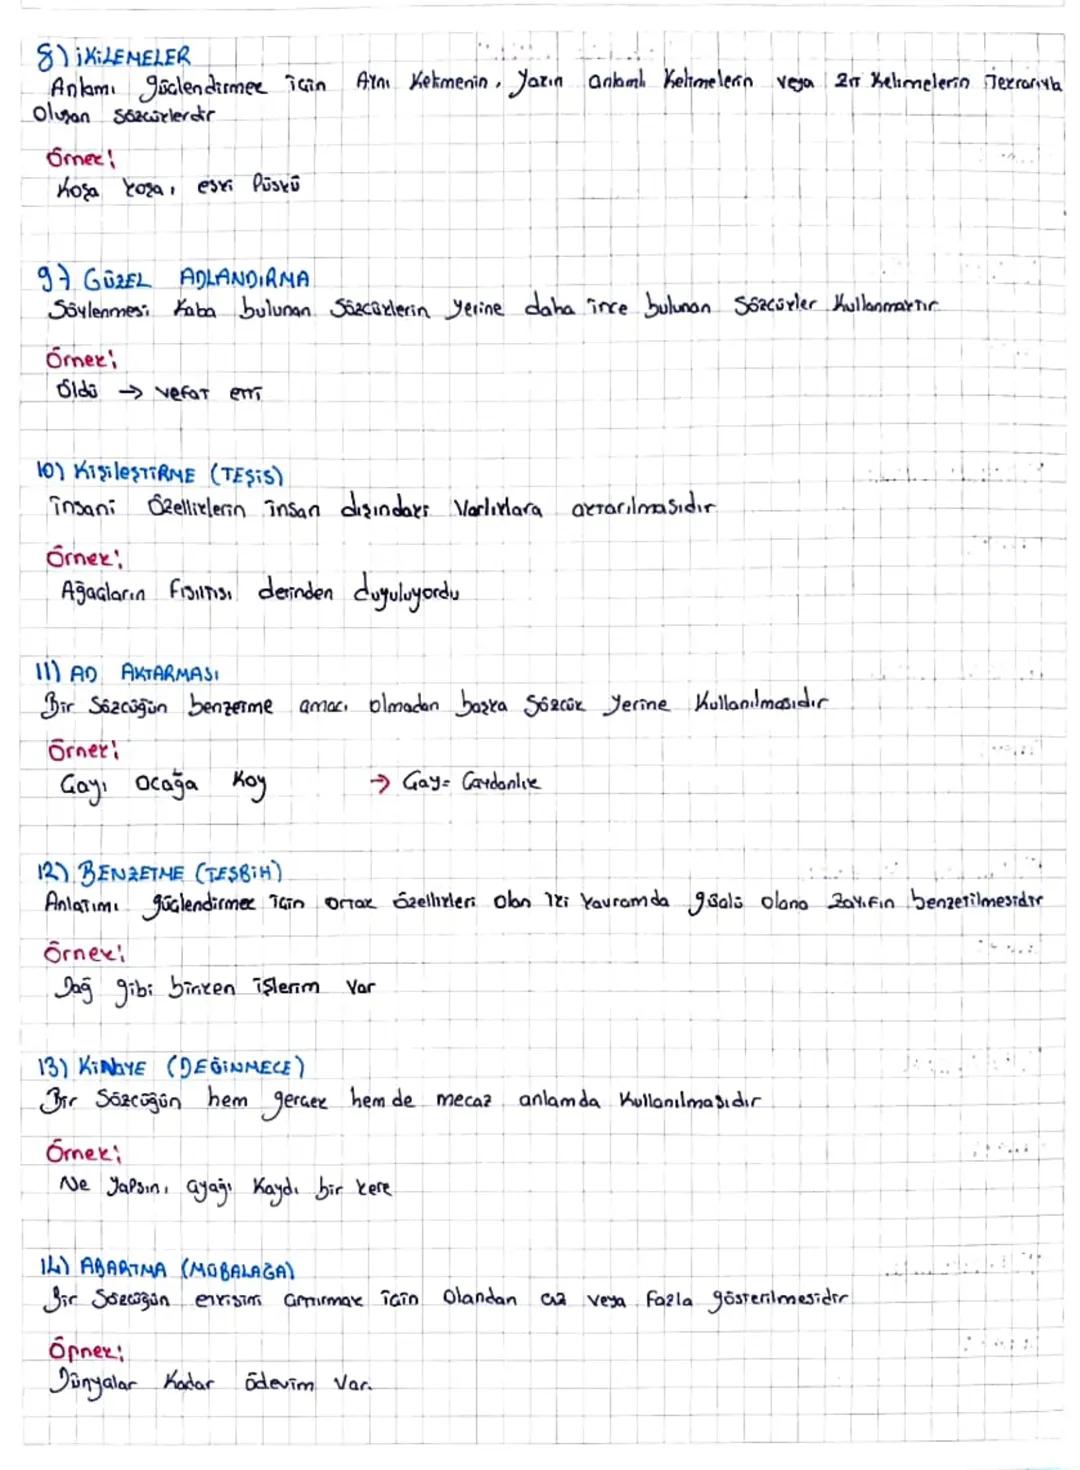 8) İKİLEMELER
Anlamı güçlendirmek için Aynı Kelimenin, Yakın anlamlı Kelimelerin veya Zıt Kelimelerin Tekrarıyla
Oluşan Sözcüklerdir
Örnek;
Koşa koşa, eski Püskü
9) GÜZEL ADLANDIRMA
Söylenmesi Kaba bulunan Sözcüklerin yerine daha ince bulunan Sözcükler Kullanmaktır
Örnek;
Öldü → vefat etti
10) KişileşTİRME (TEŞİS)
İnsani Özelliklerin insan dışındaki Varlıklara aktarılmasıdır
Örnek;
Ağaçların Fısıltısı derinden duyuluyordu
11) AD AKTARMASI
Bir Sözcüğün benzetme amacı olmadan başka Sözcük Yerine Kullanılmasıdır
Örnek;
Çayı Ocağa Koy → Çay= Çaydanlık
12) BENZETME (TEŞBİH)
Anlatımı güçlendirmek için ortak özellikleri olan iki kavramda güçlü olana zayıfın benzetilmesidir
Örnek;
Dağ gibi birken işlerim Var
13) KİNAYE (DEĞİNMECE)
Bir Sözcüğün hem gerçek hem de mecaz anlamda Kullanılmasıdır
Örnek;
Ne Yapsın, ayağı Kaydı bir kere
14) ABARTMA (MÜBALAĞA)
Bir Sözcüğün etkisini artırmak için Olandan az veya Fazla gösterilmesidir
Öpnek;
Dünyalar Kadar ödevim Var.